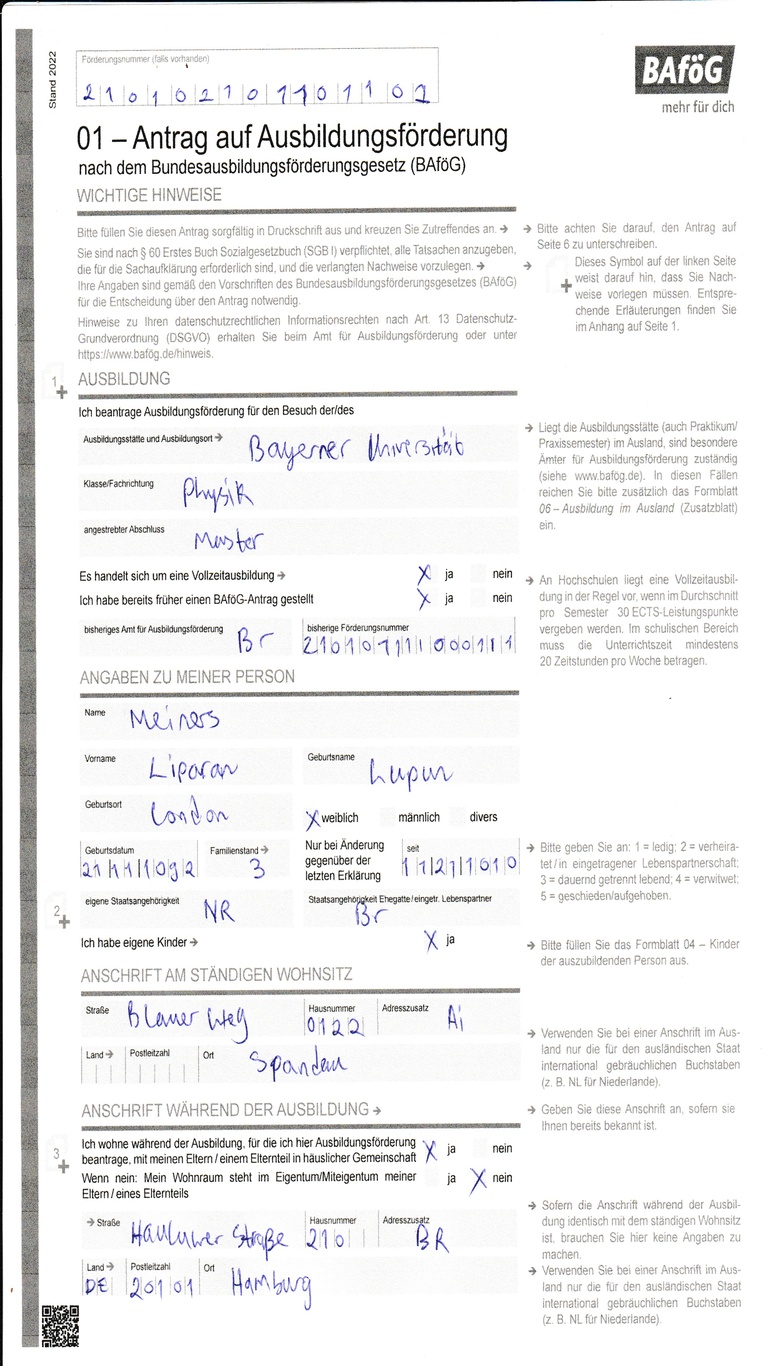 Stand 2022
Förderungsnummer (falls vorhanden)
210102101101101
BAföG
mehr für dich
01 – Antrag auf Ausbildungsförderung
nach dem Bundesausbildungsförderungsgesetz (BAföG)
WICHTIGE HINWEISE
Bitte füllen Sie diesen Antrag sorgfältig in Druckschrift aus und kreuzen Sie Zutreffendes an. →
Sie sind nach § 60 Erstes Buch Sozialgesetzbuch (SGB I) verpflichtet, alle Tatsachen anzugeben,
die für die Sachaufklärung erforderlich sind, und die verlangten Nachweise vorzulegen. →
Ihre Angaben sind gemäß den Vorschriften des Bundesausbildungsförderungsgesetzes (BAföG)
für die Entscheidung über den Antrag notwendig.
Hinweise zu Ihren datenschutzrechtlichen Informationsrechten nach Art. 13 Datenschutz-
Grundverordnung (DSGVO) erhalten Sie beim Amt für Ausbildungsförderung oder unter
https://www.bafög.de/hinweis.
→ Bitte achten Sie darauf, den Antrag auf
Seite 6 zu unterschreiben.
→ Dieses Symbol auf der linken Seite
weist darauf hin, dass Sie Nach-
weise vorlegen müssen. Entspre-
chende Erläuterungen finden Sie
im Anhang auf Seite 1.
1 AUSBILDUNG
Ich beantrage Ausbildungsförderung für den Besuch der/des
Ausbildungsstätte und Ausbildungsort → Bayerner Universität
Klasse/Fachrichtung Physik
angestrebter Abschluss Master
Es handelt sich um eine Vollzeitausbildung → X ja nein
Ich habe bereits früher einen BAföG-Antrag gestellt X ja nein
bisheriges Amt für Ausbildungsförderung Br bisherige Förderungsnummer
→ Liegt die Ausbildungsstätte (auch Praktikum/
Praxissemester) im Ausland, sind besondere
Ämter für Ausbildungsförderung zuständig
(siehe www.bafög.de). In diesen Fällen
reichen Sie bitte zusätzlich das Formblatt
06 – Ausbildung im Ausland (Zusatzblatt)
ein.
→ An Hochschulen liegt eine Vollzeitausbil-
dung in der Regel vor, wenn im Durchschnitt
pro Semester 30 ECTS-Leistungspunkte
vergeben werden. Im schulischen Bereich
muss die Unterrichtszeit mindestens
20 Zeitstunden pro Woche betragen.
ANGABEN ZU MEINER PERSON
Name Meiners
Vorname Liparan Geburtsname Lupun
Geburtsort London X weiblich männlich divers
Geburtsdatum Familienstand → 3 Nur bei Änderung
gegenüber der
letzten Erklärung seit 11211010
2 eigene Staatsangehörigkeit NR Staatsangehörigkeit Ehegatte/eingetr. Lebenspartner Br
Ich habe eigene Kinder → X ja
→ Bitte geben Sie an: 1 = ledig; 2 = verheira-
tet/in eingetragener Lebenspartnerschaft;
3 = dauernd getrennt lebend; 4 = verwitwet;
5 = geschieden/aufgehoben.
→ Bitte füllen Sie das Formblatt 04 – Kinder
der auszubildenden Person aus.
ANSCHRIFT AM STÄNDIGEN WOHNSITZ
Straße Blauer Weg Hausnummer 0122 Adresszusatz Ai
Land → Postleitzahl Ort Spandau
→ Verwenden Sie bei einer Anschrift im Aus-
land nur die für den ausländischen Staat
international gebräuchlichen Buchstaben
(z. B. NL für Niederlande).
ANSCHRIFT WÄHREND DER AUSBILDUNG →
→ Geben Sie diese Anschrift an, sofern sie
Ihnen bereits bekannt ist.
3 Ich wohne während der Ausbildung, für die ich hier Ausbildungsförderung
beantrage, mit meinen Eltern / einem Elternteil in häuslicher Gemeinschaft X ja nein
Wenn nein: Mein Wohnraum steht im Eigentum/Miteigentum meiner
Eltern / eines Elternteils ja X nein
→ Straße Straße Hausnummer 210 Adresszusatz BR
Land → DE Postleitzahl 20101 Ort Hamburg
→ Sofern die Anschrift während der Ausbil-
dung identisch mit dem ständigen Wohnsitz
ist, brauchen Sie hier keine Angaben zu
machen.
→ Verwenden Sie bei einer Anschrift im Aus-
land nur die für den ausländischen Staat
international gebräuchlichen Buchstaben
(z. B. NL für Niederlande).